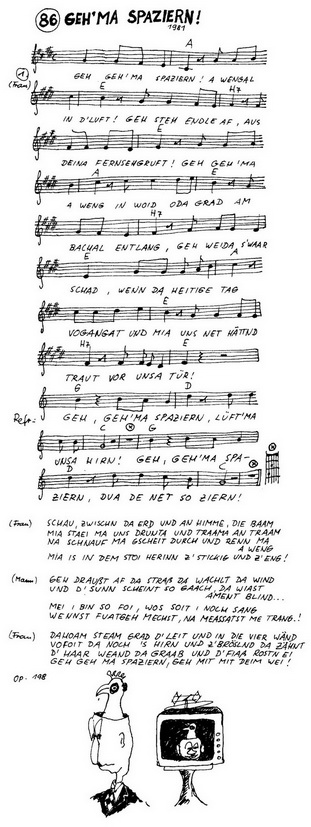 86 GEH'MA SPAZIERN!
1981
A
1.
(Frau)
GEH GEH'MA SPAZIERN! A WENGAL
E H7
IN D'LUFT! GEH STEH ENDLE AF, AUS
E
DEINA FERNSEHGRUFT! GEH GEH'MA
A E
A WENG IN WOID ODA GRAD AM
H7
BACHAL ENTLANG, GEH WEIDA, S'WAAR
E A
SCHAD, WENN DA HEITIGE TAG
E
VOGANGAT UND MIA UNS NET HÄTTND
H7 E
TRAUT VOR UNSA TÜR!
G D
Refr:
GEH, GEH'MA SPAZIERN, LÜFT'MA
C G
UNSA HIRN! GEH, GEH'MA SPA-
D C
ZIERN, DUA DE NET SO ZIERN!
(Frau) SCHAU, ZWISCHN DA ERD UND AN HIMME, DIE BAAM
MIA STAEI MA UNS DRUNTA UND TRAAMA AN TRAAM
NA SCHNAUF MA GSCHEIT DURCH UND RENN MA
A WENG
MIA IS IN DEM STOI HERINN Z'STICKIG UND Z'ENG!
(Mann) GEH DRAUẞT AF DA STRAß DA WACHLT DA WIND
UND D'SUNN SCHEINT SO GAACH, DA WIAST
AMENT BLIND...
MEI I BIN SO FOI, WOS SOIT I NOCH SANG
WENNST FUATGEH MECHST, NA MEASSATST ME TRANG.!
(Frau) DAHOAM STEAM GRAD D'LEIT UND IN DIE VIER WÄND
VOFOIT DA NOCH 'S HIRN UND Z'BRÖSLND DA ZÄHNT
D'HAAR WEAND DA GRAAB UND D'FIAẞ ROSTN EI
GEH GEH MA SPAZIERN, GEH MIT MIT DEIM WEI!
OP. 198